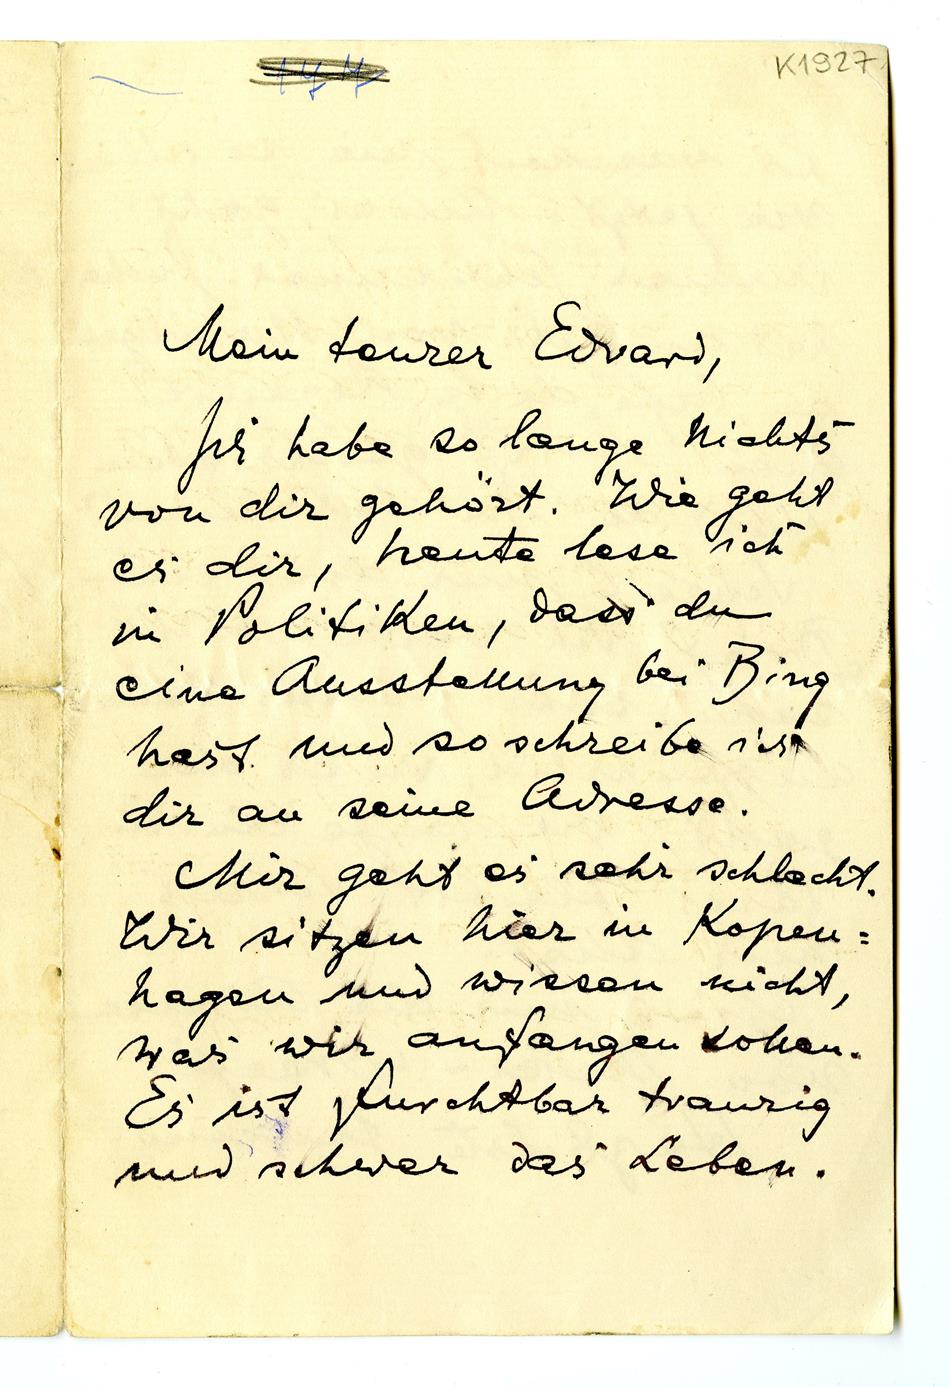 K1927
Mein teurer Edvard,
Ich habe so lange Nichts
von dir gehört. Wie geht
es dir, heute lese ich
in Politiken, dass du
eine Ausstellung bei Bing
hast und so schreibe ich
dir an seine Adresse.
Mir geht es sehr schlecht.
Wir sitzen hier in Kopen=
hagen und wissen nicht,
was wir anfangen sollen.
Es ist furchtbar traurig
und schwer das Leben.